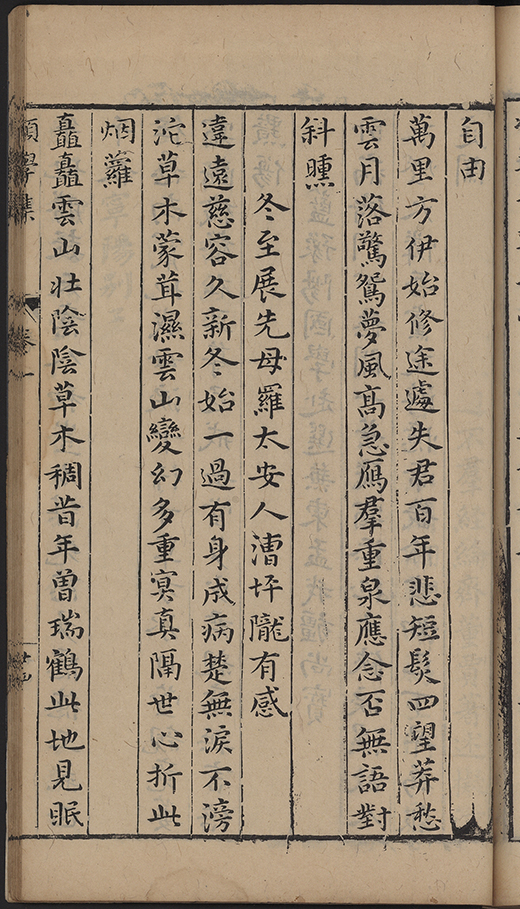 自由
萬里方伊始修途遽失君百年悲短髮四望莽愁
雲月落驚鴛夢風高急鴈羣重泉應念否無語對
斜曛
冬至展先母羅太安人漕坪隴有感
違遠慈容久新冬始一過有身成病楚無淚不滂
沱草木蒙茸濕雲山變幻多重冥真隔世心折此
烟蘿
矗矗雲山壯陰陰草木稠昔年曾瑞鶴此地見眠
集
卷一